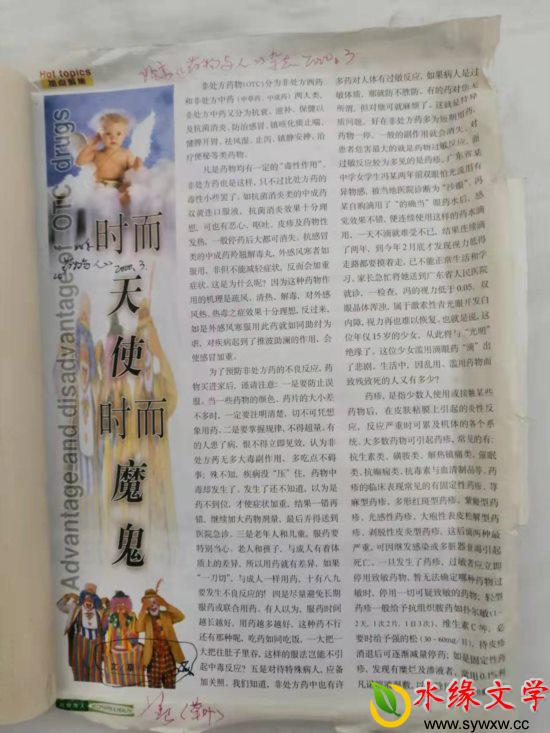 Hot topics
热点聚焦
Advantage and disadvantage of OTC drugs
时而
天
使
时而
魔
鬼
非处方药物(OTC)分为非处方西药
和非处方中药(中草药、中成药)两大类,
非处方中药又分为扶衰、滋补、保健以
及抗菌消炎、防治感冒、镇咳化痰止喘、
健脾开胃、祛风湿、止泻、镇静安神、治
疗便秘等类药物。
凡是药物均有一定的“毒性作用”。
非处方药也是这样,只不过比处方药的
毒性小些罢了。如抗菌消炎类的中成药
双黄连口服液,抗菌消炎效果十分理
想,可也有恶心、呕吐、皮疹及药物性
发热,一般停药后大都可消失。抗感冒
类的中成药羚翘解毒丸,外感风寒者如
服用,非但不能减轻症状,反而会加重
症状。这是为什么呢?因为这种药物作
用的机理是疏风、清热、解毒,对外感
风热、热毒之症效果十分理想,反过来,
如是外感风寒服用此药就如同助纣为
虐,对疾病起到了推波助澜的作用,会
使感冒加重。
为了预防非处方药的不良反应,药
物买进家后,谨请注意:一是要防止误
服。当一些药物的颜色、药片的大小差
不多时,一定要注明清楚,切不可凭想
象用药。二是要掌握规律,不得超量。有
的人患了病,恨不得立即见效,认为非
处方药无多大毒副作用,多吃点不碍
事;殊不知,疾病没“压”住,药物中
毒却发生了。发生了还不知道,以为是
药不到位,才使症状加重,结果一错再
错,继续加大药物剂量,最后弄得送到
医院急诊。三是老年人和儿童,服药要
特别当心。老人和孩子,与成人有着体
质上的差异,所以用药就有差异,如果
“一刀切”,与成人一样用药,十有八九
要发生不良反应的!四是尽量避免长期
服药或联合用药。有人以为,服药时间
越长越好,用药越多越好。这种药不行
还有那种呢。吃药如同吃饭,一大把一
大把往肚子里吞,这样的服法岂能不引
起中毒反应?五是对待特殊病人,应备
加关照。我们知道,非处方中也有许
多药对人体有过敏反应,如果病人是过
敏体质,那就防不胜防。有的药对你无
所谓,但对他可就麻烦了。这就是特异
质问题。好在非处方药多为短期用药,
药物一停,一般的副作用就会消失。对
患者危害最大的就是药物过敏反应,而
过敏反应较为多见的是药疹。广东省某
中学女学生冯某两年前双眼怕光流泪有
异物感,被当地医院诊断为“沙眼”,冯
某自购滴用了“的确当”眼药水后,感
觉效果不错,便连续使用这样的药水滴
用,一天不滴就难受不已,结果连续滴
了两年,到今年2月底才发现视力低得
走路都要摸着走,已不能正常生活和学
习。家长急忙将她送到广东省人民医院
就诊,一检查,冯的视力低于0.05,双
眼晶体浑浊,属于激素性青光眼并发白
内障,视力再也难以恢复,也就是说,这
位年仅15岁的少女,从此将与“光明”
绝缘了。这位少女滥用滴眼药“滴”出
了悲剧。生活中,因乱用、滥用药物而
致残致死的人又有多少?
药疹,是指少数人使用或接触某些
药物后,在皮肤粘膜上引起的炎性反
应,反应严重时可累及机体的各个系
统,大多数药物可引起药疹,常见的有:
抗生素类、磺胺类、解热镇痛类、催眠
类、抗癫痫类、抗毒素与血清制品等。药
疹的临床表现常见的有固定性药疹、荨
麻疹型药疹、多形红斑型药疹、紫癜型药
疹、光感性药疹、大疱性表皮松解型药
疹、剥脱性皮炎型药疹,这后面两种最
严重,可因继发感染或多脏器衰竭引起
死亡。一旦发生了药疹,过敏者应立即
停用致敏药物,暂无法确定哪种药物过
敏时,停用一切可疑致敏的药物;轻型
药疹一般给予抗组织胺药如扑尔敏(1-
2天,1次2片,1日3次),维生素C等,必
要时给予强的松(30-60mg/日),待皮疹
消退后可逐渐减量停药;如是固定性药
疹,发现有糜烂及渗液者,
水缘文学
www.sywxw.cc